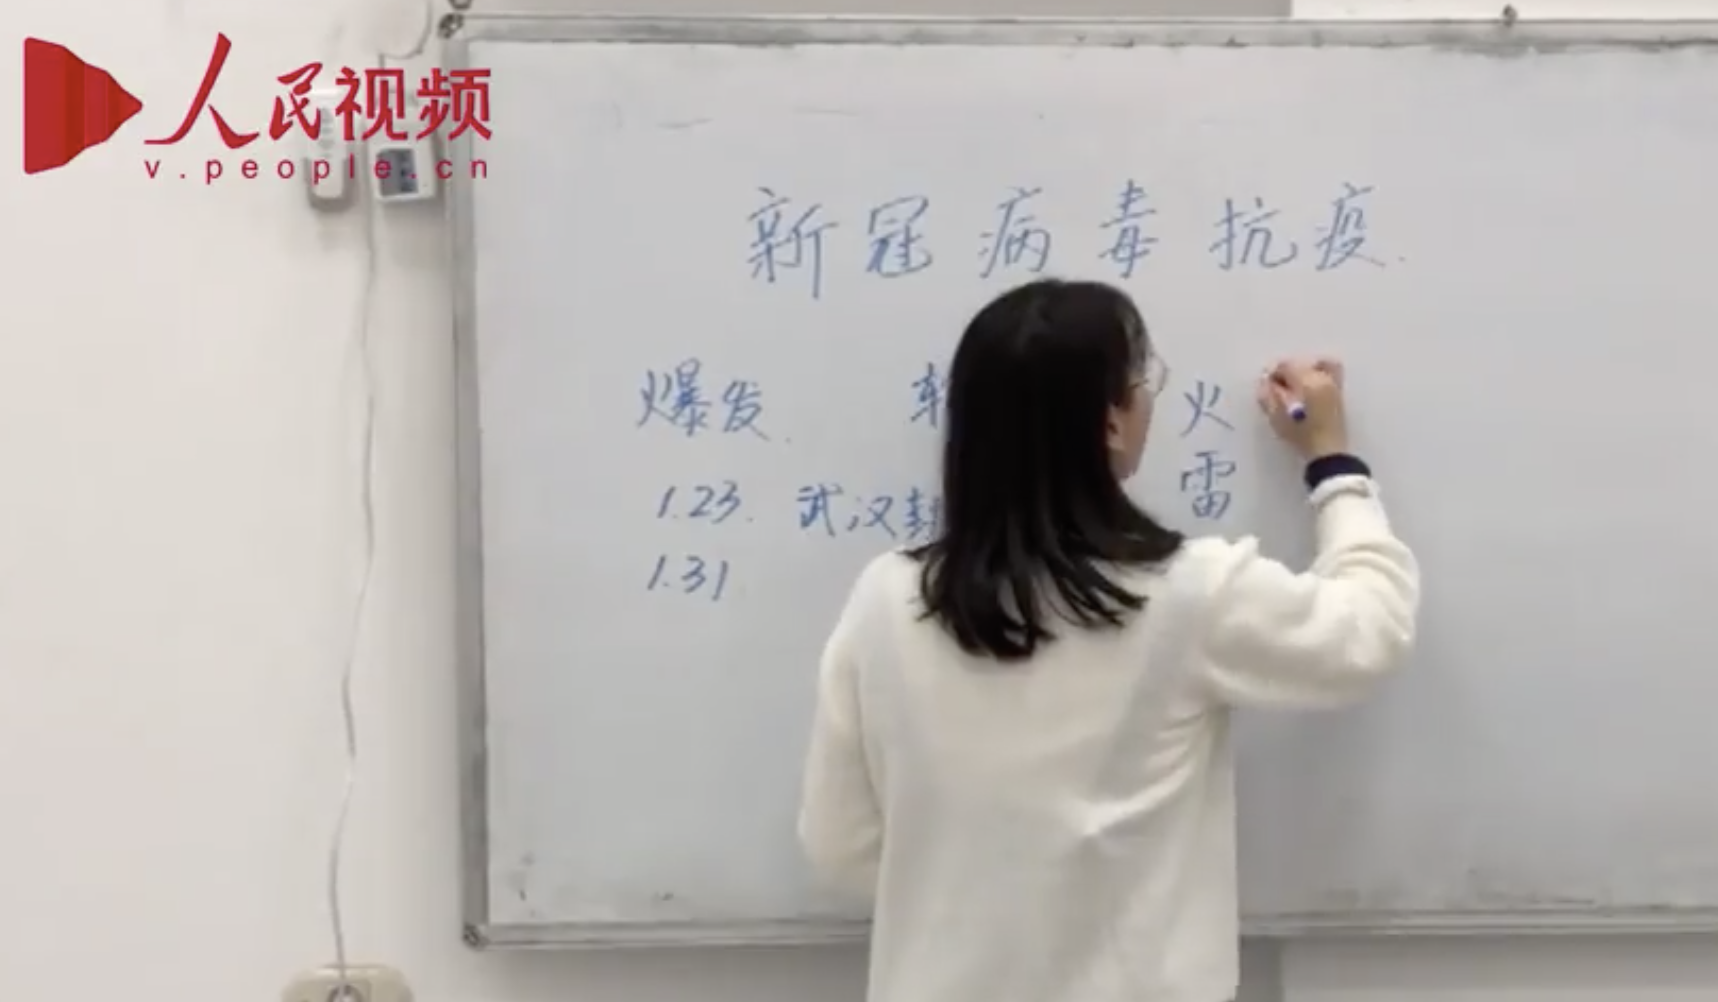 人民视频
v.people.cn
新冠病毒抗疫.
爆发. 火
雷
1.23. 武汉封
1.31